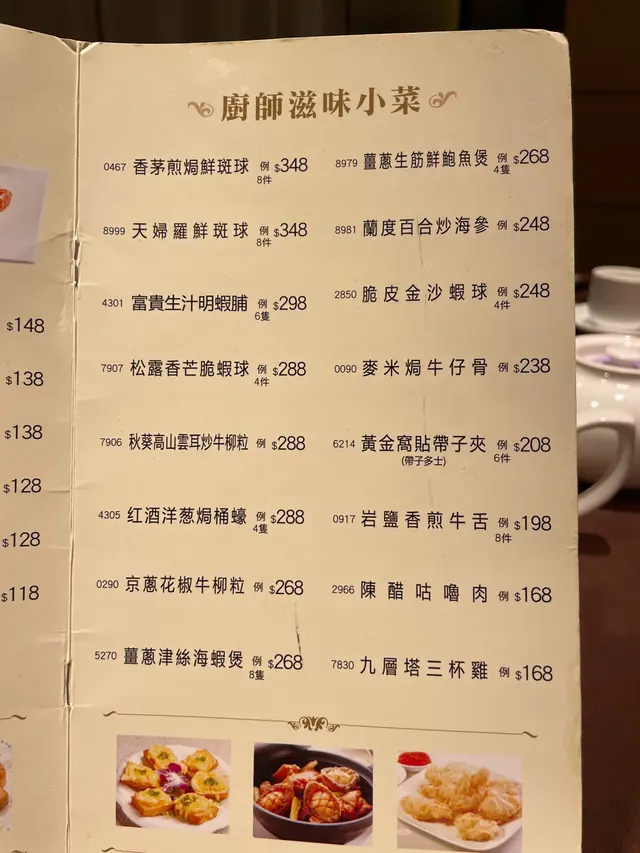 廚師滋味小菜
0467 香茅煎焗鮮斑球 例 $348
8件
8999 天婦羅鮮斑球 例 $348
8件
4301 富貴生汁明蝦脯 例 $298
6隻
7907 松露香芒脆蝦球 例 $288
4件
7906 秋葵高山雲耳炒牛柳粒 例 $288
4305 红酒洋葱焗桶蠔 例 $288
4隻
0290 京蔥花椒牛柳粒 例 $268
5270 薑蔥津絲海蝦煲 例 $268
8隻
8979 薑蔥生筋鮮鮑魚煲 例 $268
4隻
8981 蘭度百合炒海參 例 $248
2850 脆皮金沙蝦球 例 $248
4件
0090 麥米焗牛仔骨 例 $238
6214 黃金窩貼帶子夾 例 $208
(帶子多士) 6件
0917 岩鹽香煎牛舌 例 $198
8件
2966 陳醋咕嚕肉 例 $168
7830 九層塔三杯雞 例 $168
$148
$138
$138
$128
$128
$118